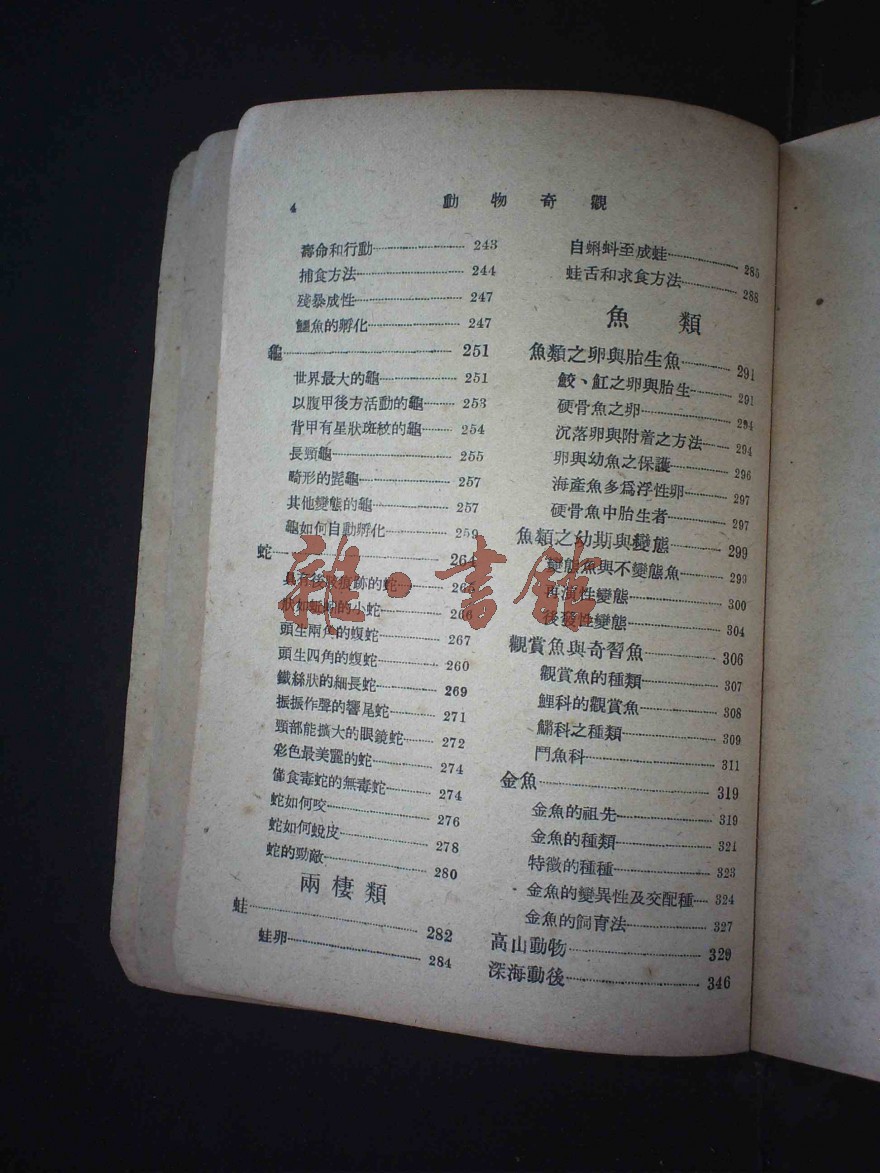 4 動物奇觀
壽命和行動 243
捕食方法 244
殘暴成性 247
鱷魚的孵化 247
龜 251
世界最大的龜 251
以腹甲後方活動的龜 253
背甲有星狀斑紋的龜 254
長頸龜 255
畸形的髭龜 257
其他變態的龜 257
龜如何自動孵化 259
蛇 264
具有後肢痕跡的蛇 265
狀如蚯蚓的小蛇 266
頭生兩角的蝮蛇 267
頭生四角的蝮蛇 260
鐵絲狀的細長蛇 269
振振作聲的響尾蛇 271
頸部能擴大的眼鏡蛇 272
彩色最美麗的蛇 274
節食毒蛇的無毒蛇 274
蛇如何咬 276
蛇如何蛻皮 278
蛇的勁敵 280
兩棲類
蛙 282
蛙卵 284
自蝌蚪至成蛙 285
蛙舌和求食方法 288
魚類
魚類之卵與胎生魚 291
鮫、魟之卵與胎生 291
硬骨魚之卵 294
沉落卵與附着之方法 294
卵與幼魚之保護 296
海產魚多爲浮性卵 297
硬骨魚中胎生者 297
魚類之幼期與變態 299
變態魚與不變態魚 299
再演性變態 300
後發性變態 304
觀賞魚與奇習魚 306
觀賞魚的種類 307
鯉科的觀賞魚 308
鱂科之種類 309
鬥魚科 311
金魚 319
金魚的祖先 319
金魚的種類 321
特徵的種種 323
金魚的變異性及交配種 324
金魚的飼育法 327
高山動物 329
深海動後 346
雜·書館